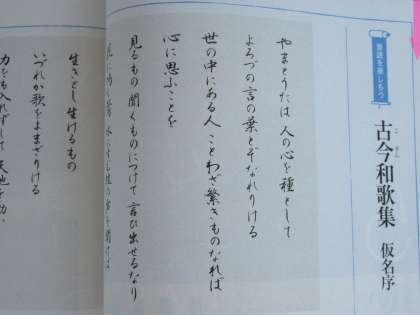 音読を楽しもう
古今和歌集 仮名序
こきん
やまとうたは 人の心を種として
よろづの言の葉とぞなれりける
世の中にある人 ことわざ繁きものなれば
心に思ふことを
見るもの 聞くものにつけて 言ひ出せるなり
生きとし生けるもの
いづれか歌をよまざりける
力をも入れずして 天地を動